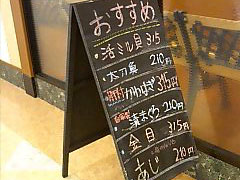 おすすめ
・活ミル貝 315
・太刀魚 210円
かわはぎ 315円
・漬まぐろ 210円
・金目 315円
・あじ 210円